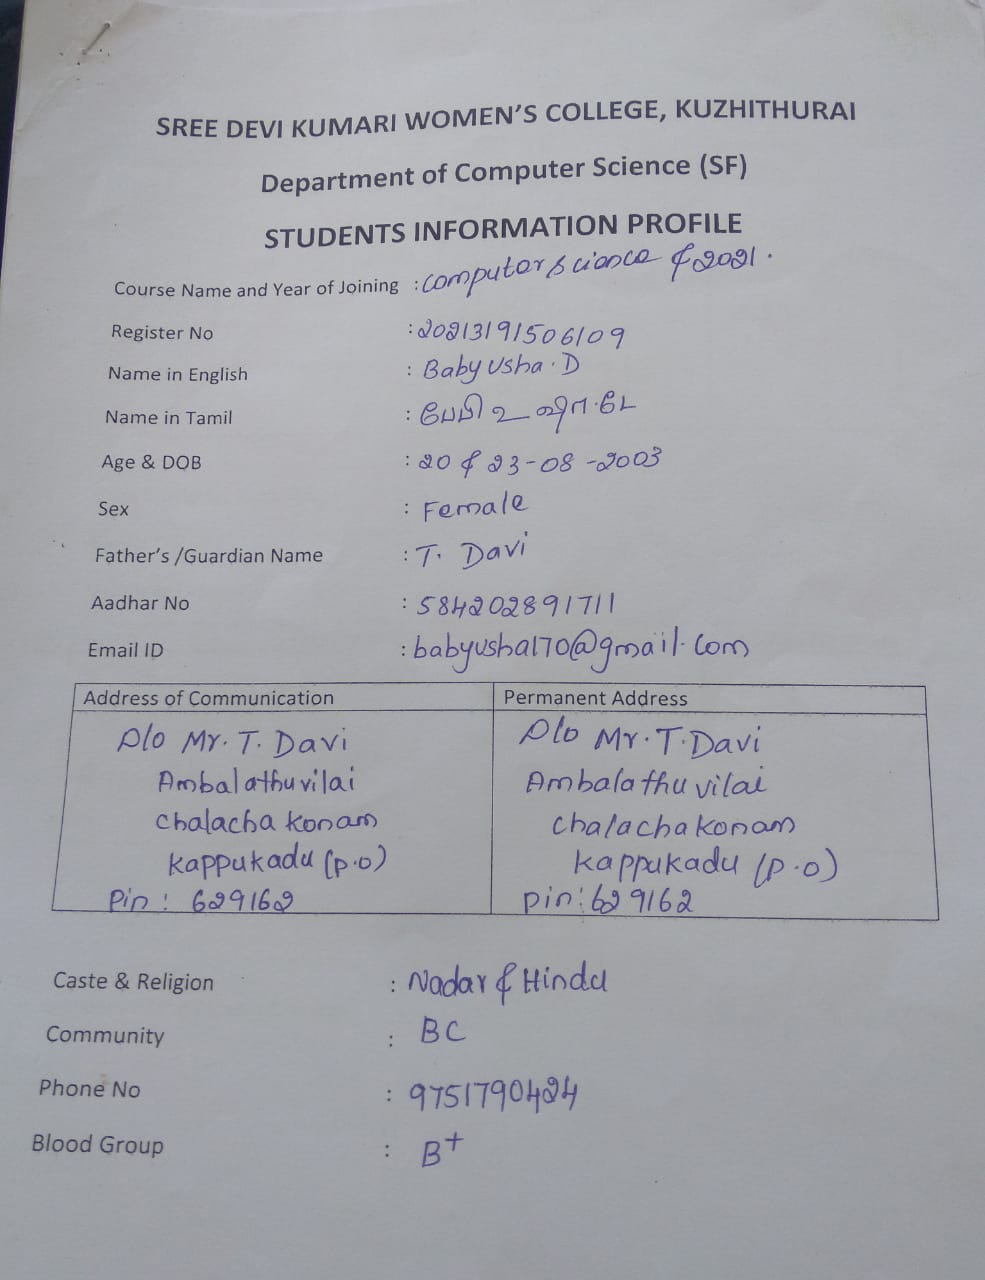 SREE DEVI KUMARI WOMEN'S COLLEGE, KUZHITHURAI
Department of Computer Science (SF)
STUDENTS INFORMATION PROFILE
Course Name and Year of Joining : Computer science & 2021.
Register No : 20213191506109
Name in English : Baby Usha . D
Name in Tamil : பேபி உஷா . டே
Age & DOB : 20 & 23-08-2003
Sex : Female
Father's /Guardian Name : T. Davi
Aadhar No : 584202891711
Email ID : babyusha170@gmail.com
Address of Communication Permanent Address
D/o Mr. T. Davi D/o Mr. T. Davi
Ambalathuvilai Ambalathuvilai
Chalacha konam Chalachakonam
Kappukadu (p.o) Kappukadu (p.o)
Pin : 629162 pin : 629162
Caste & Religion : Nadar & Hindu
Community : BC
Phone No : 9751790424
Blood Group : B+